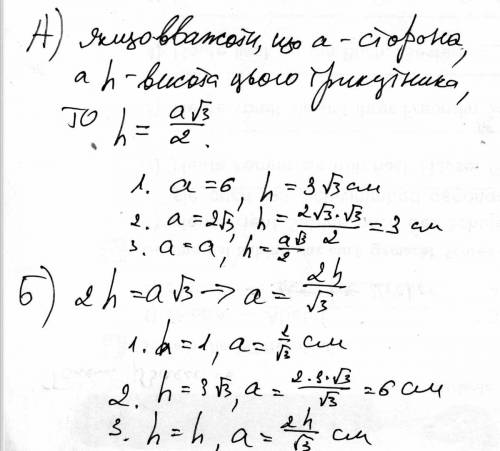 А) якщо вважати, що a - сторона,
а h - висота цього трикутника,
то h = a√3/2.
1. a = 6, h = 3√3 см
2. a = 2√3, h = 2√3·√3/2 = 3 см
3. a = a, h = a√3/2
Б) 2h = a√3 → a = 2h/√3
1. h = 1, a = 2/√3 см
2. h = 3√3, a = 2·3·√3/√3 = 6 см
3. h = h, a = 2h/√3 см